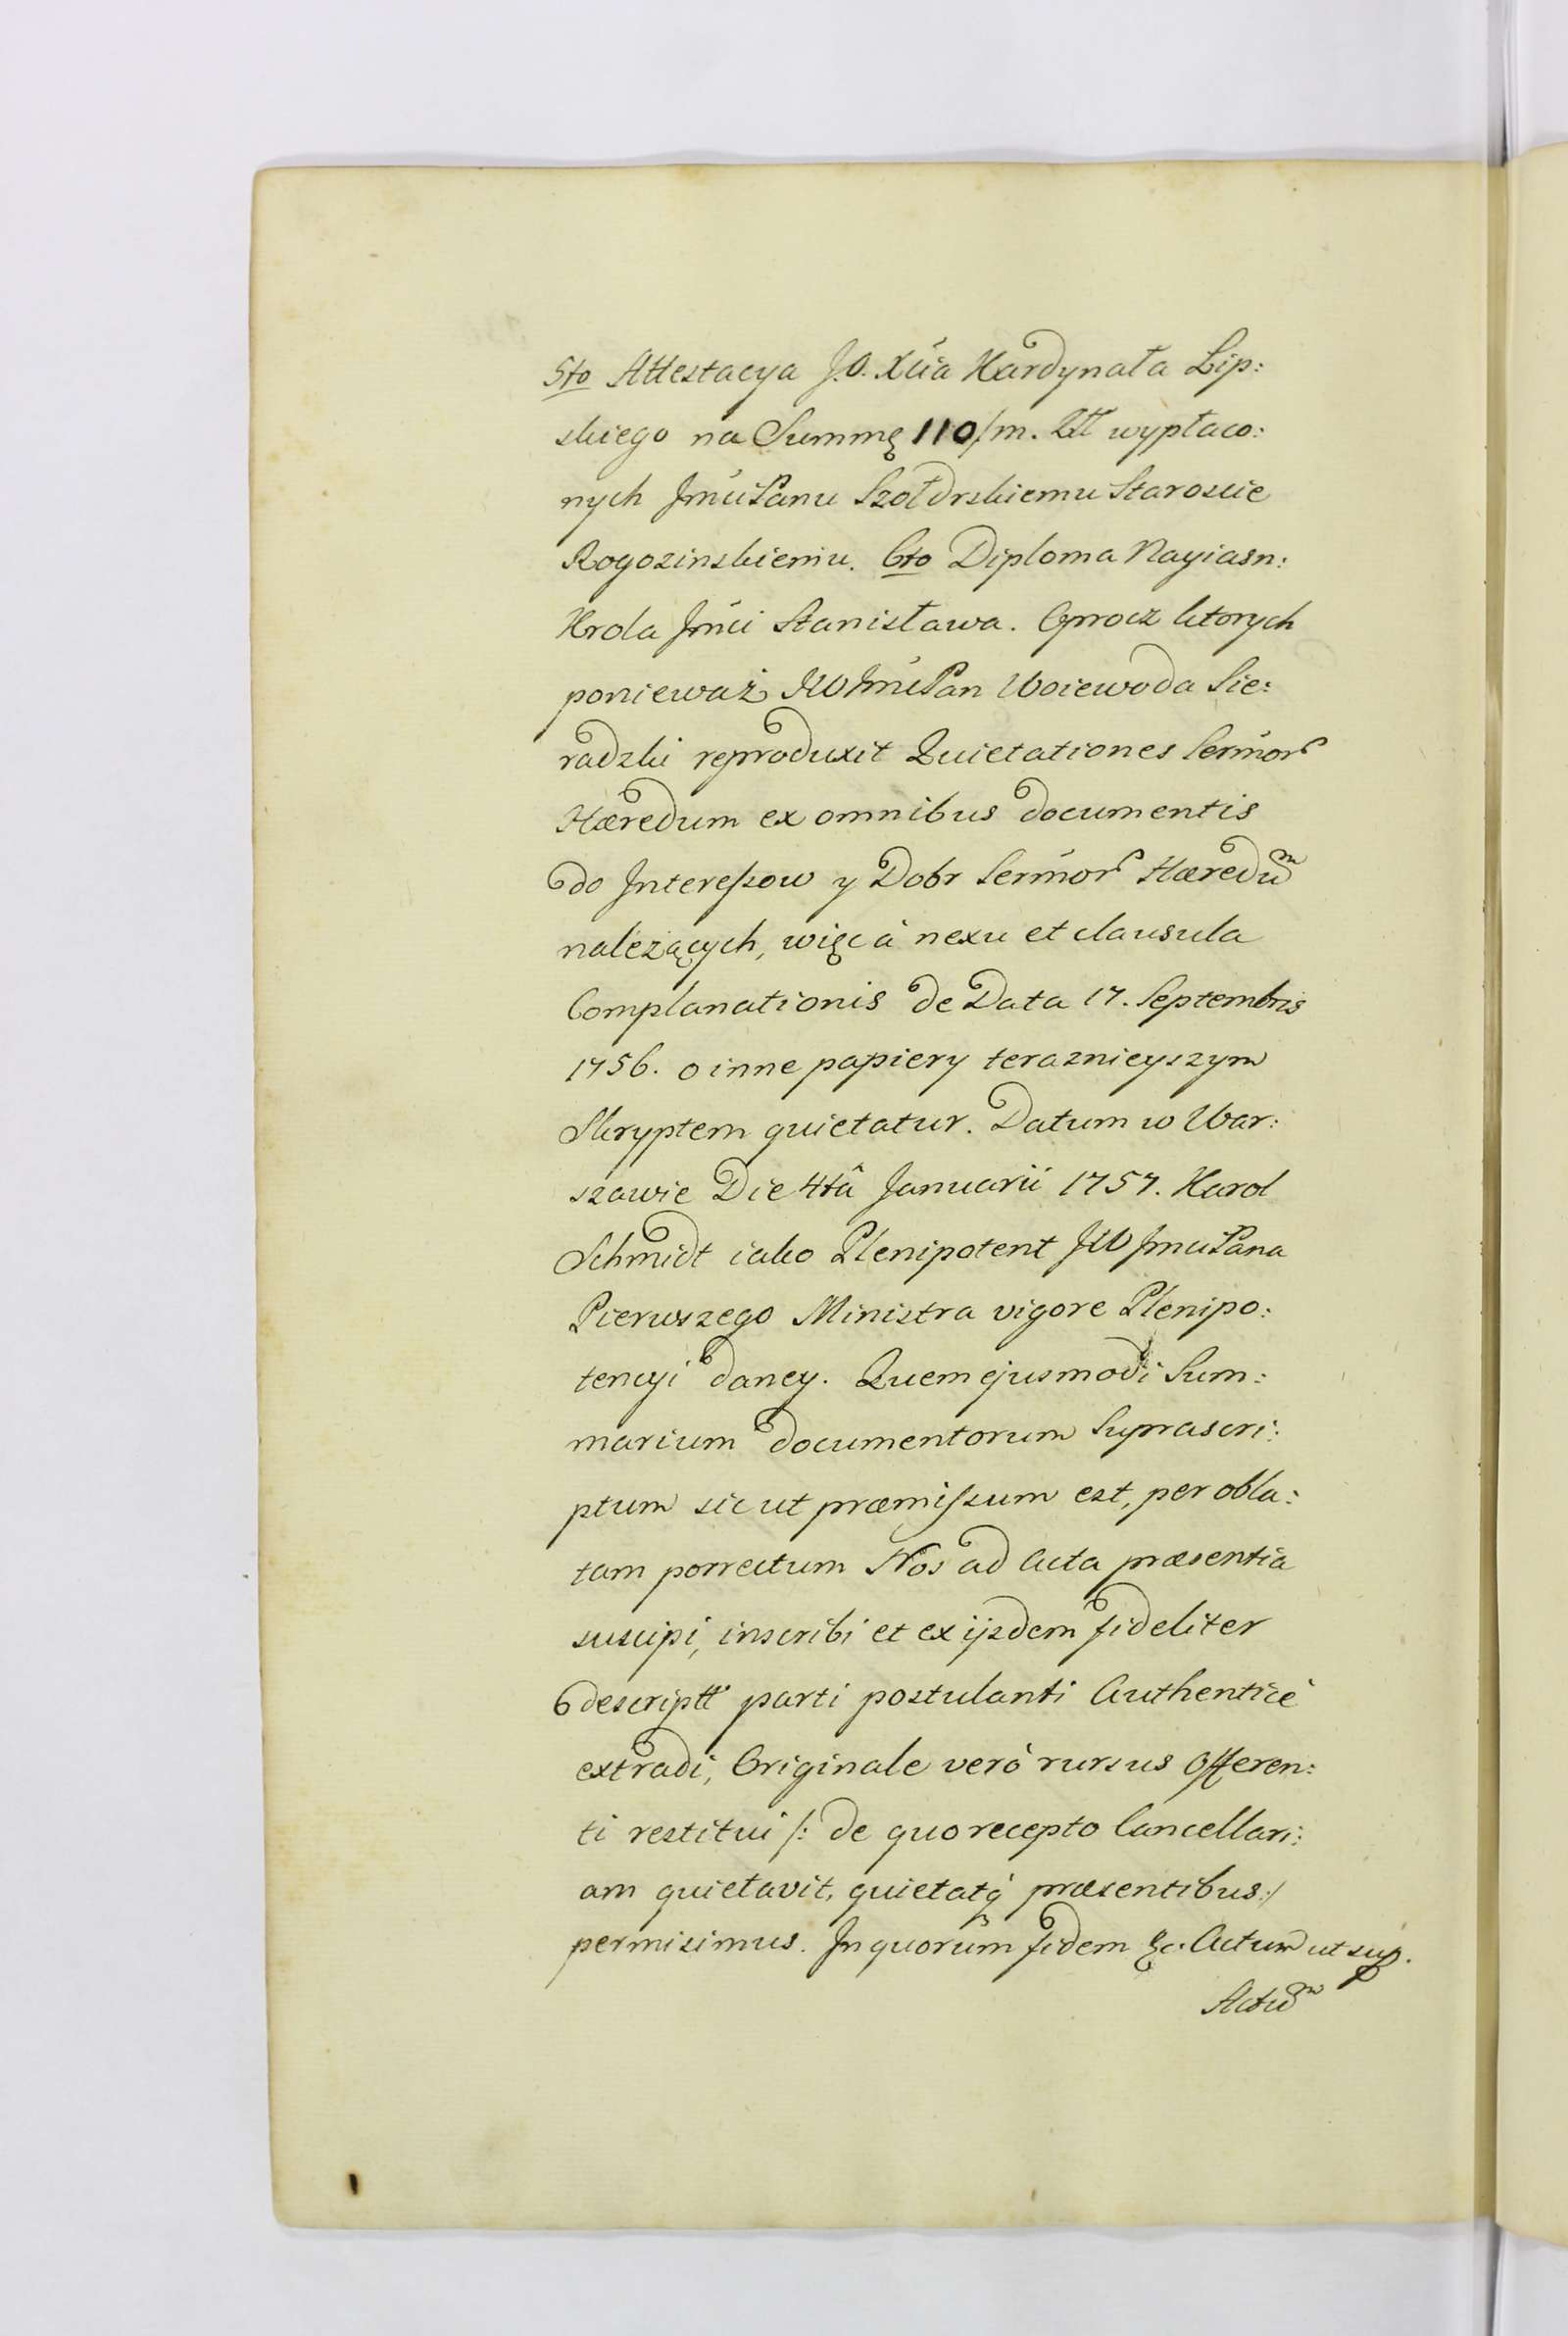 5to Attestacya J.O. Xcia Kardynała Lip:
skiego na Summę 110/m. Ztt wypłaco:
nych Jmci Panu Szołdrskiemu Staroscie
Rogozinskiemu. 6to Diploma Nayiasn:
Krola Jmci Stanisława. Oprocz ktorych
ponieważ JW Jmci Pan Woiewoda Sie:
radzki reproduxit Quietationes Sermor
Hæredum ex omnibus documentis
do Interessow y Dobr Sermor Hæredum
nalezących, więc à nexu et clausula
Complanationis de Data 17. Septembris
1756. o inne papiery teraznieyszym
Skryptem quietatur. Datum w War:
szawie Die 4tâ Januarii 1757. Karol
Schmidt iako Plenipotent JW Jmci Pana
Pierwszego Ministra vigore Plenipo:
tencyi daney. Quem ejusmodi Sum:
marium documentorum Suprascri:
ptum sicut præmissum est, per obla:
tam porrectum Nos ad Acta præsentia
suscipi, inscribi et ex ijsdem fideliter
descriptt parti postulanti Authenticè
extradi, Originale verò rursus Offeren:
ti restitui /: de quo recepto Cancellari:
am quietavit, quietatq́ præsentibus :/
permisimus. In quorum fidem &c. Actum ut sup.
Actum